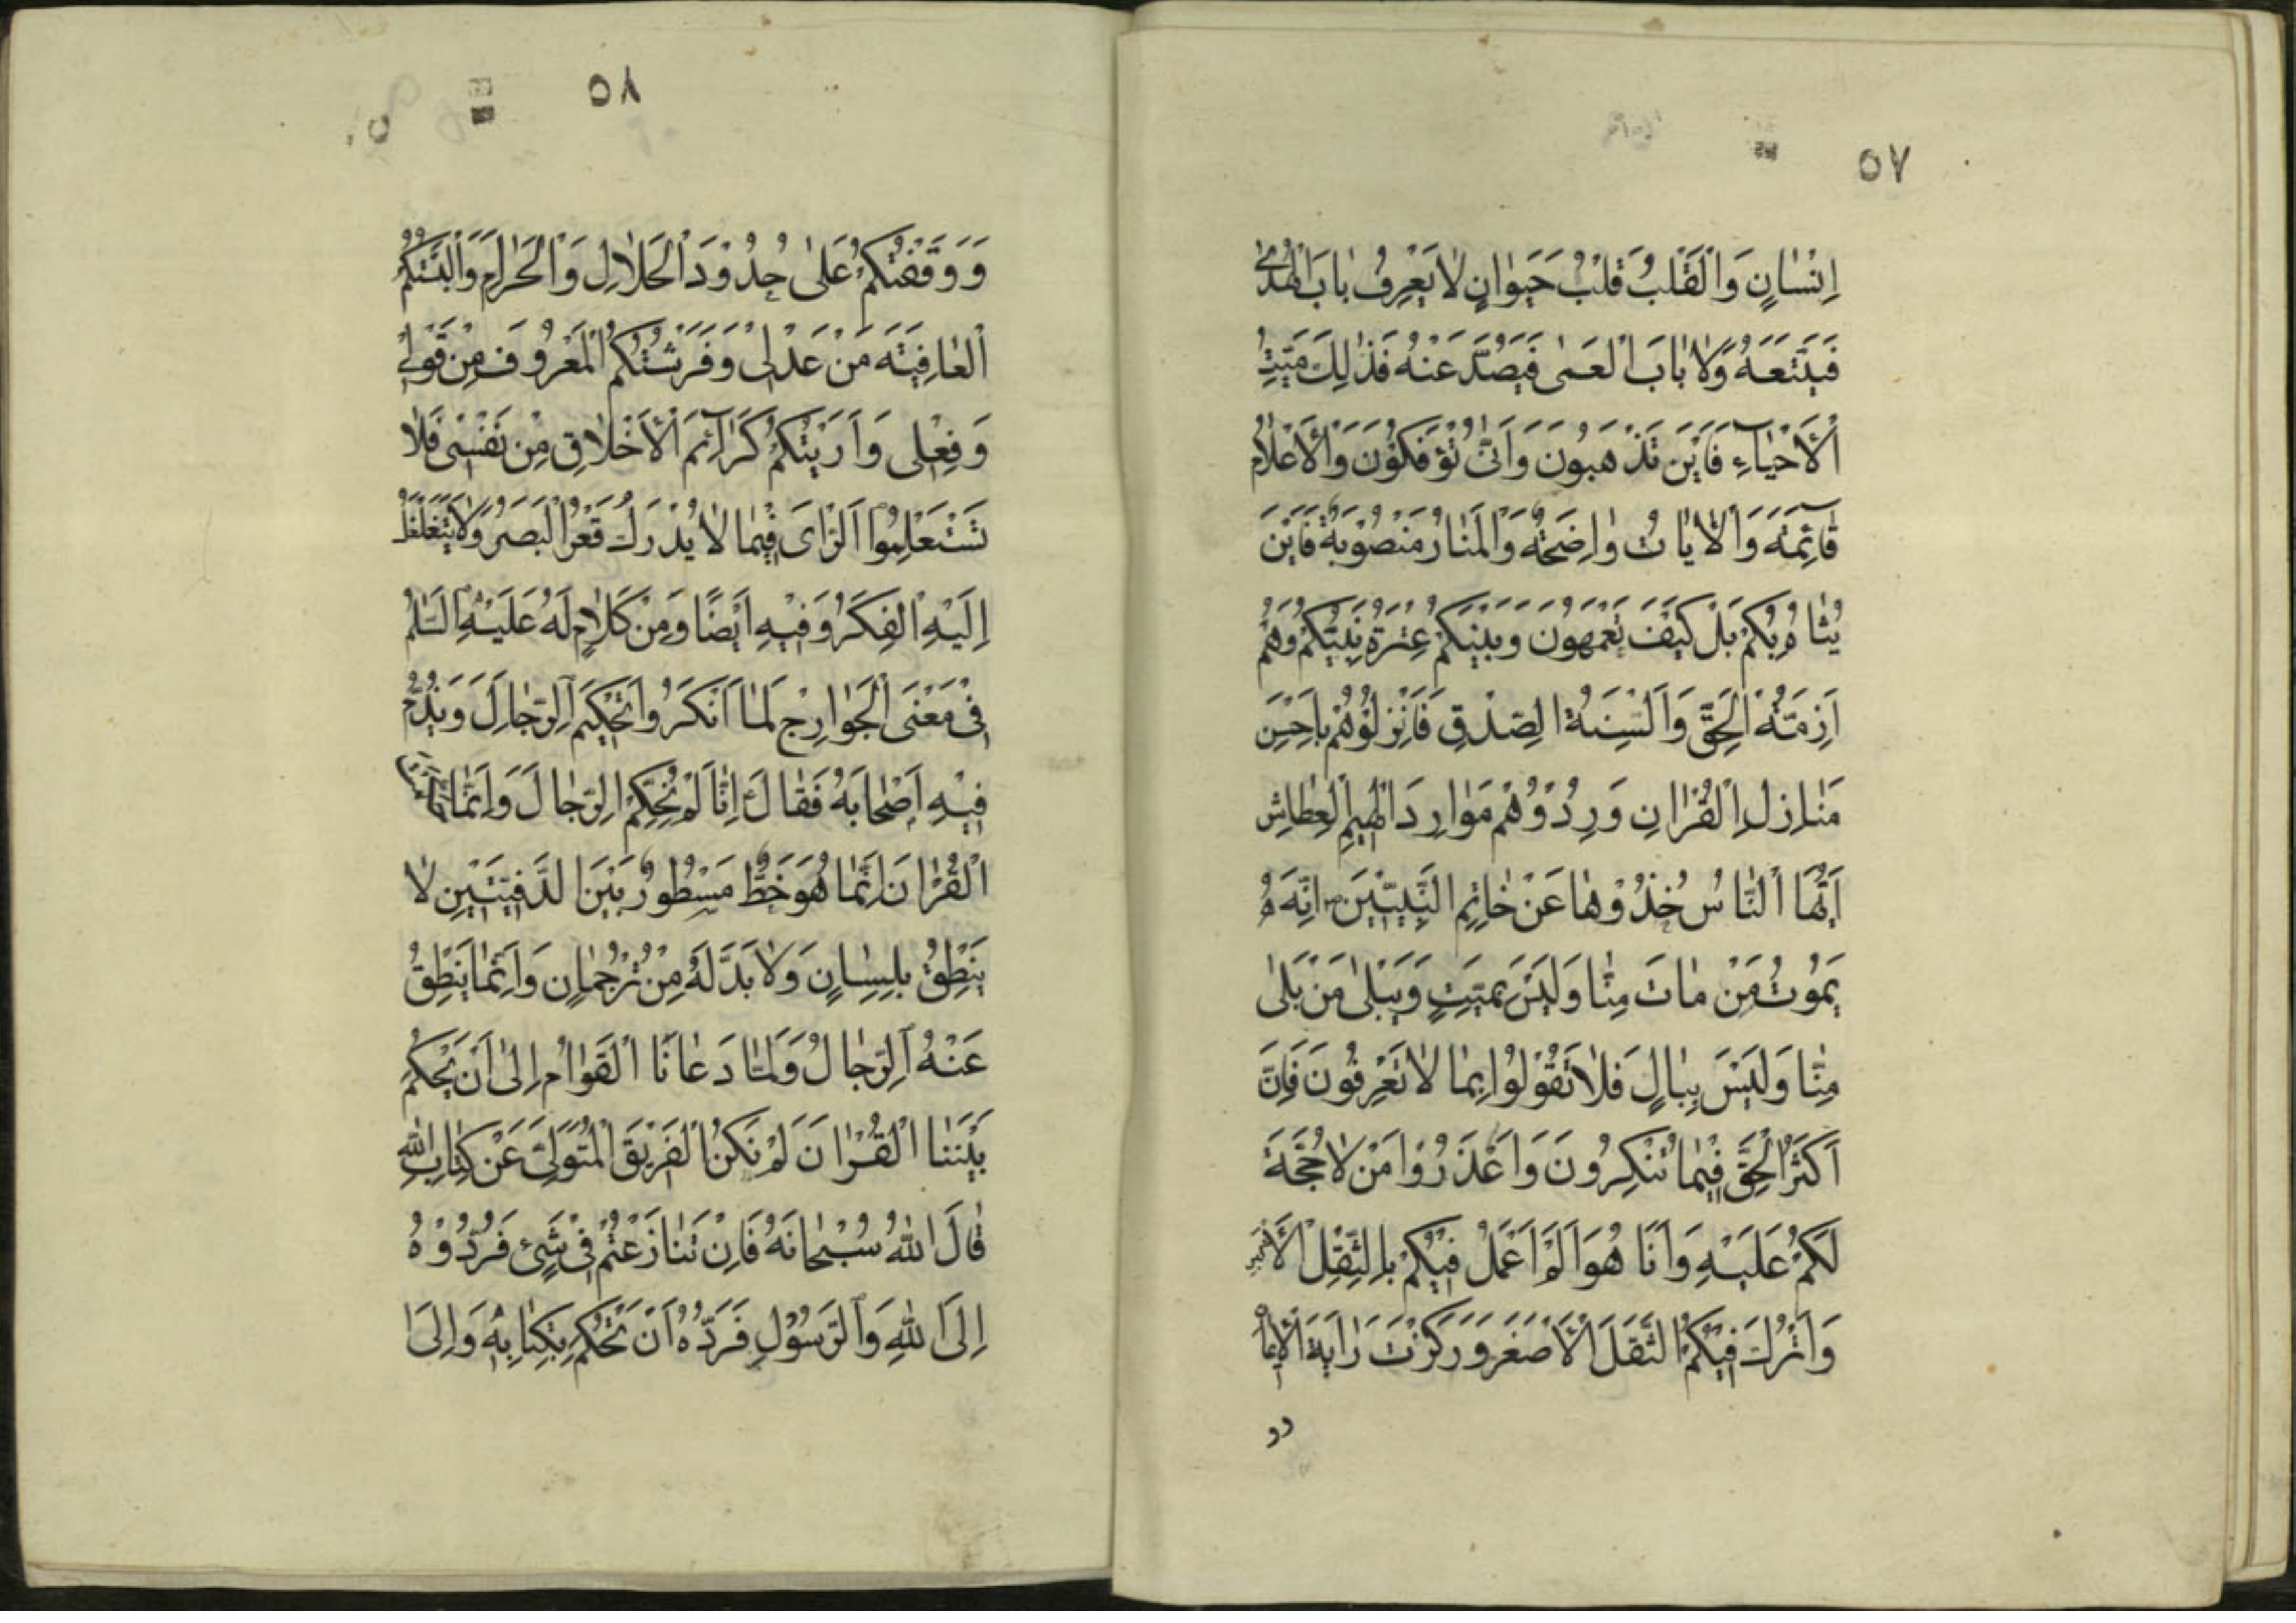 ٥٧
اِنْسٰانٍ وَالْقَلْبُ قَلْبُ حَيَوٰانٍ لٰا يَعْرِفُ بٰابَ الْهُدىٰ
فَيَتَّبِعَهُ وَلٰا بٰابَ الْعَمىٰ فَيَصُدَّ عَنْهُ فَذٰلِكَ مَيِّتُ
الْأَحْيٰاءِ فَاَيْنَ تَذْهَبُونَ وَاَنّٰى تُؤْفَكُونَ وَالْأَعْلٰامُ
قٰائِمَةٌ وَالْاٰيٰاتُ وٰاضِحَةٌ وَالْمَنٰارُ مَنْصُوْبَةٌ فَاَيْنَ
يُتٰاهُ بِكُمْ بَلْ كَيْفَ تَعْمَهُونَ وَبَيْنَكُمْ عِتْرَةُ نَبِيِّكُمْ وَهُمْ
اَزِمَّةُ الْحَقِّ وَاَلْسِنَةُ الصِّدْقِ فَاَنْزِلُوْهُمْ بِاَحْسَنِ
مَنٰازِلِ الْقُرْاٰنِ وَرِدُوْهُمْ مَوٰارِدَ الْهِيمِ الْعِطٰاشِ
اَيُّهَا النّٰاسُ خُذُوْهٰا عَنْ خٰاتِمِ النَّبِيّيْنَ ص اِنَّهُ
يَمُوْتُ مَنْ مٰاتَ مِنّٰا وَلَيْسَ بِمَيِّتٍ وَيَبْلىٰ مَنْ بَلىٰ
مِنّٰا وَلَيْسَ بِبٰالٍ فَلٰا تَقُوْلُوْا بِمٰا لٰا تَعْرِفُونَ فَاِنَّ
اَكْثَرَ الْحَقِّ فِيْمٰا تُنْكِرُونَ وَاعْذِرُوْا مَنْ لٰا حُجَّةَ
لَكُمْ عَلَيْهِ وَاَنَا هُوَ اَلَمْ اَعْمَلْ فِيْكُمْ بِالثِّقْلِ الْأَكْبَرِ
وَاَتْرُكَ فِيْكُمُ الثَّقَلَ الْأَصْغَرَ وَرَكَزْتُ رٰايَةَ الْإِيمٰانِ
٥٨
وَوَقَفْتُكُمْ عَلىٰ حُدُوْدِ الْحَلٰالِ وَالْحَرٰامِ وَاَلْبَسْتُكُمُ
الْعٰافِيَةَ مِنْ عَدْلِى وَفَرَشْتُكُمُ الْمَعْرُوْفَ مِنْ قَوْلِى
وَفِعْلِى وَاَرَيْتُكُمْ كَرٰائِمَ الْأَخْلٰاقِ مِنْ نَفْسِى فَلٰا
تَسْتَعْمِلُوا الرَّاْىَ فِيْمٰا لٰا يُدْرِكُ قَعْرَهُ الْبَصَرُ وَلٰا يَتَغَلْغَلُ
اِلَيْهِ الْفِكَرُ وَفِيْهِ اَيْضًا وَمِنْ كَلٰامٍ لَهُ عَلَيْهِ السَّلٰمُ
فِىْ مَعْنَى الْخَوٰارِجِ لَمّٰا اَنْكَرُوا تَحْكِيْمَ الرِّجٰالِ وَيَذُمُّ
فِيْهِ اَصْحٰابَهُ فَقٰالَ اِنّٰا لَمْ نُحَكِّمِ الرِّجٰالَ وَاِنَّمٰا حَكَّمْنَا
الْقُرْاٰنَ اِنَّمٰا هُوَ خَطٌّ مَسْطُورٌ بَيْنَ الدَّفَّتَيْنِ لٰا
يَنْطِقُ بِلِسٰانٍ وَلٰا بُدَّ لَهُ مِنْ تُرْجُمٰانٍ وَاِنَّمٰا يَنْطِقُ
عَنْهُ الرِّجٰالُ وَلَمّٰا دَعٰانَا الْقَوْمُ اِلىٰ اَنْ نُحَكِّمَ
بَيْنَنٰا الْقُرْاٰنَ لَمْ نَكُنِ الْفَرِيْقَ الْمُتَوَلِّىَ عَنْ كِتٰابِ اللّٰهِ
قٰالَ اللّٰهُ سُبْحٰانَهُ فَاِنْ تَنٰازَعْتُمْ فِىْ شَىْءٍ فَرُدُّوْهُ
اِلَى اللّٰهِ وَالرَّسُوْلِ فَرَدُّهُ اَنْ نَحْكُمَ بِكِتٰابِهِ وَاِلَى